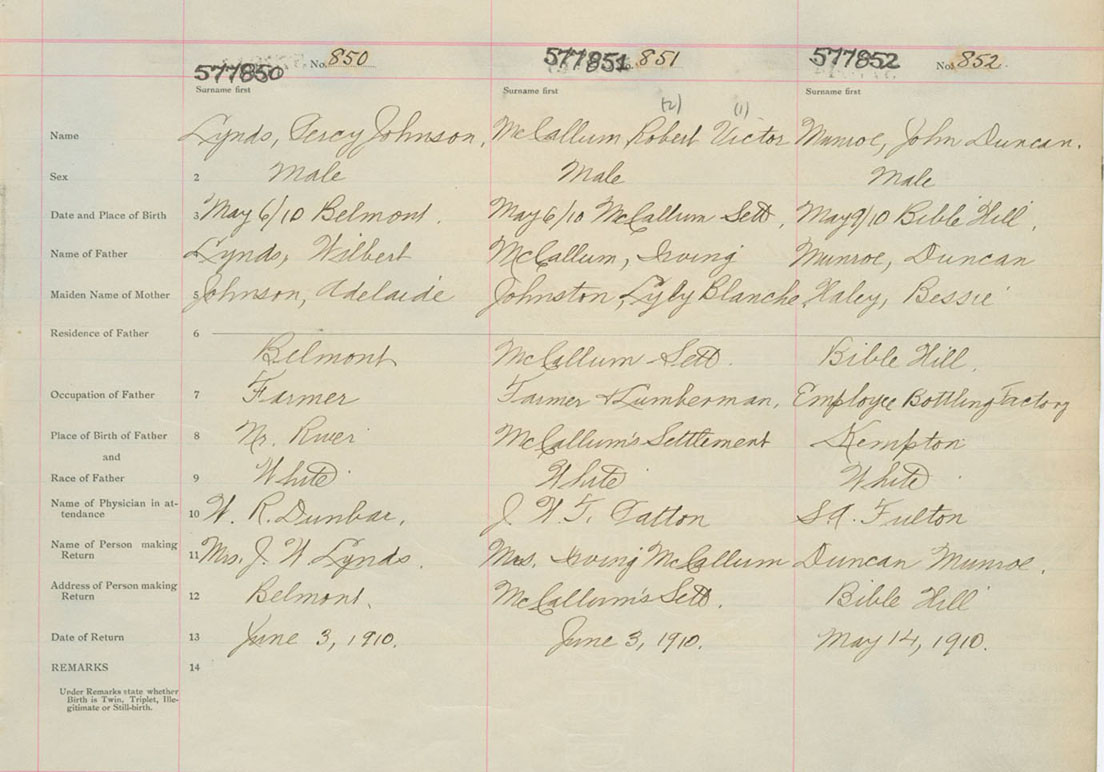 577850 No. 850 577851 No. 851 577852 No. 852
Surname first Surname first Surname first
(2) (1)
Name Lynds, Percy Johnson, McCallum Robert Victor Munroe, John Duncan.
Sex 2 Male Male Male
Date and Place of Birth 3 May 6/10 Belmont. May 6/10 McCallum Sett. May 9/10 Bible Hill.
Name of Father Lynds, Wilbert McCallum, Irving Munroe, Duncan
Maiden Name of Mother 5 Johnson, Adelaide Johnston, Lyly Blanche Haley, Bessie
Residence of Father 6
Belmont McCallum Sett. Bible Hill.
Occupation of Father 7 Farmer Farmer & Lumberman, Employee Bottling Factory
Place of Birth of Father 8 Nr. River McCallum's Settlement Kempton
and
Race of Father 9 White White White
Name of Physician in at-
tendance 10 W. R. Dunbar, J. W. T. Patton S. A. Fulton
Name of Person making
Return 11 Mrs. J. W Lynds. Mrs. Irving McCallum Duncan Munroe.
Address of Person making
Return 12 Belmont. McCallum's Sett. Bible Hill
Date of Return 13 June 3, 1910. June 3, 1910. May 14, 1910.
REMARKS 14
Under Remarks state whether
Birth is Twin, Triplet, Ille-
gitimate or Still-birth.